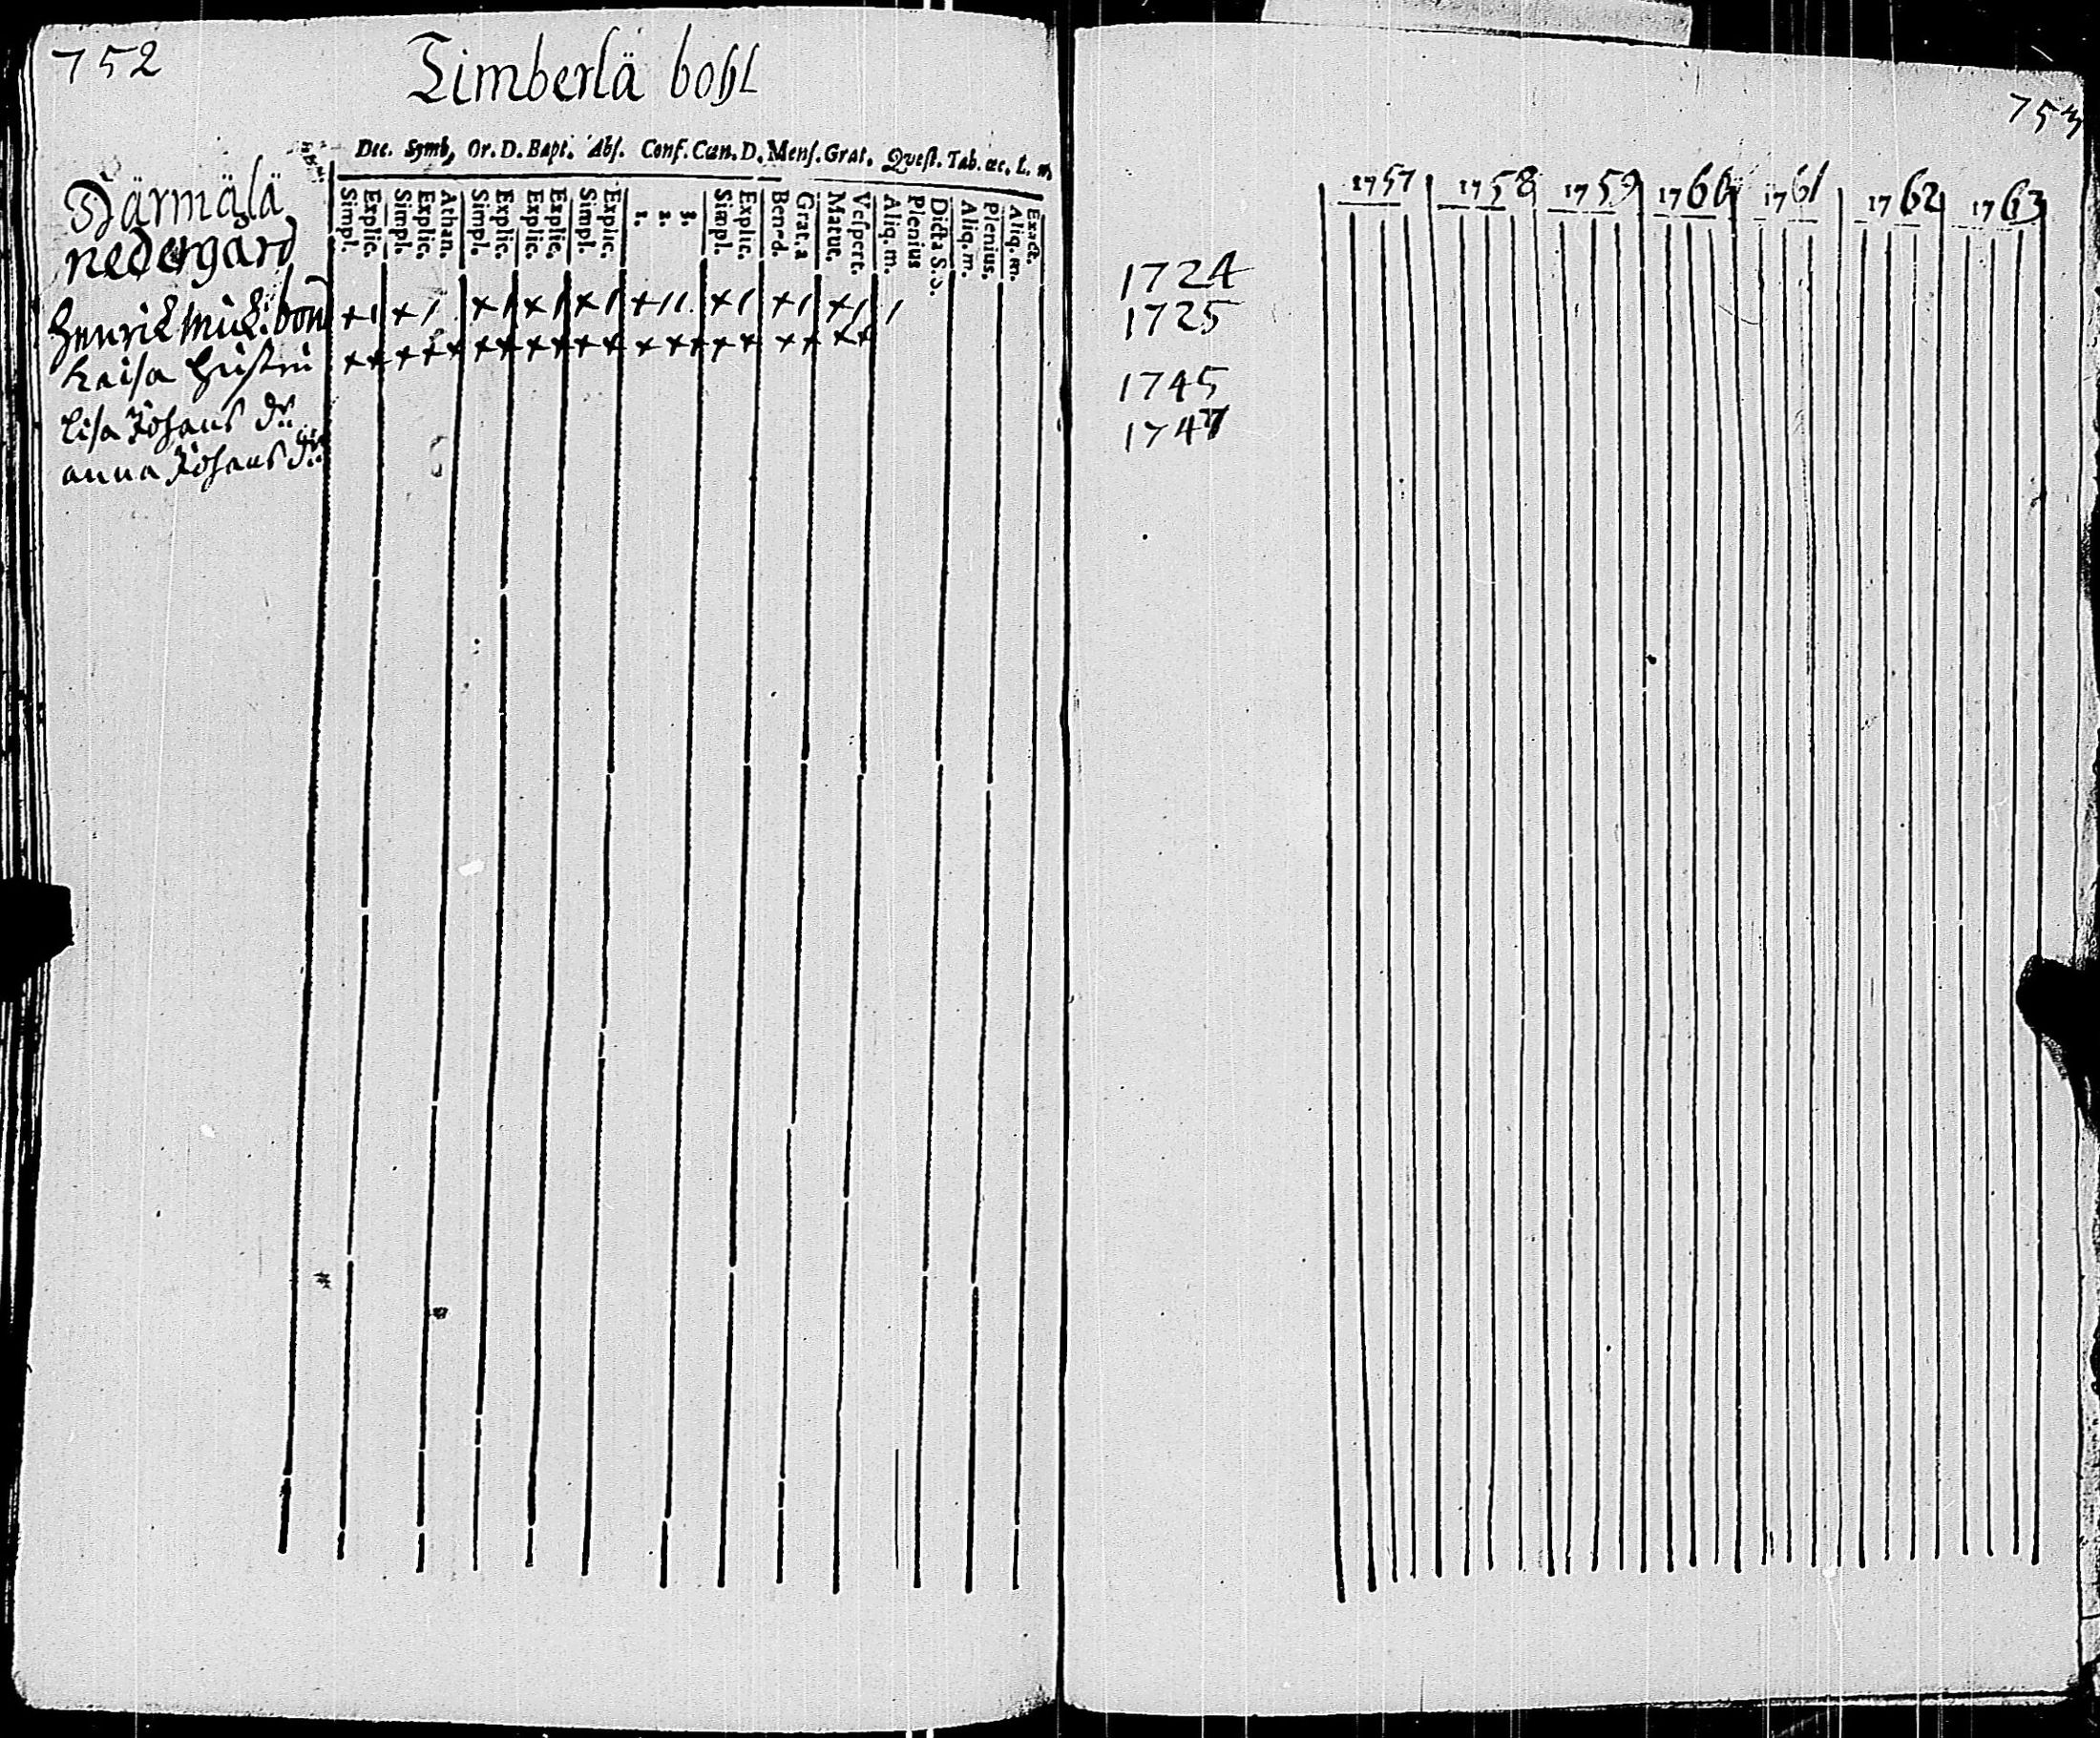 752
Timberlä bohl
Dec. Symb, Or. D. Bapt. Abs. Conf. Cœn. D. Mens. Grat. Quest. Tab. œc. L. m.
Simpl. Explic. Simpl. Explic. Athan. Simpl. Explic. Explic. Explic. Simpl. Explic. 1. 2. 3. Simpl. Explic. Bened. Grat. a Matut. Vespert. Aliq. m. Plenius Dicta S. S. Aliq. m. Plenius. Aliq. m. Exact.
Därmälä
nedergård
Henrik Mich: bon
Kaisa hustru
Lisa Johans dr
anna Johans dr
753
1757 1758 1759 1760 1761 1762 1763
1724
1725
1745
1747